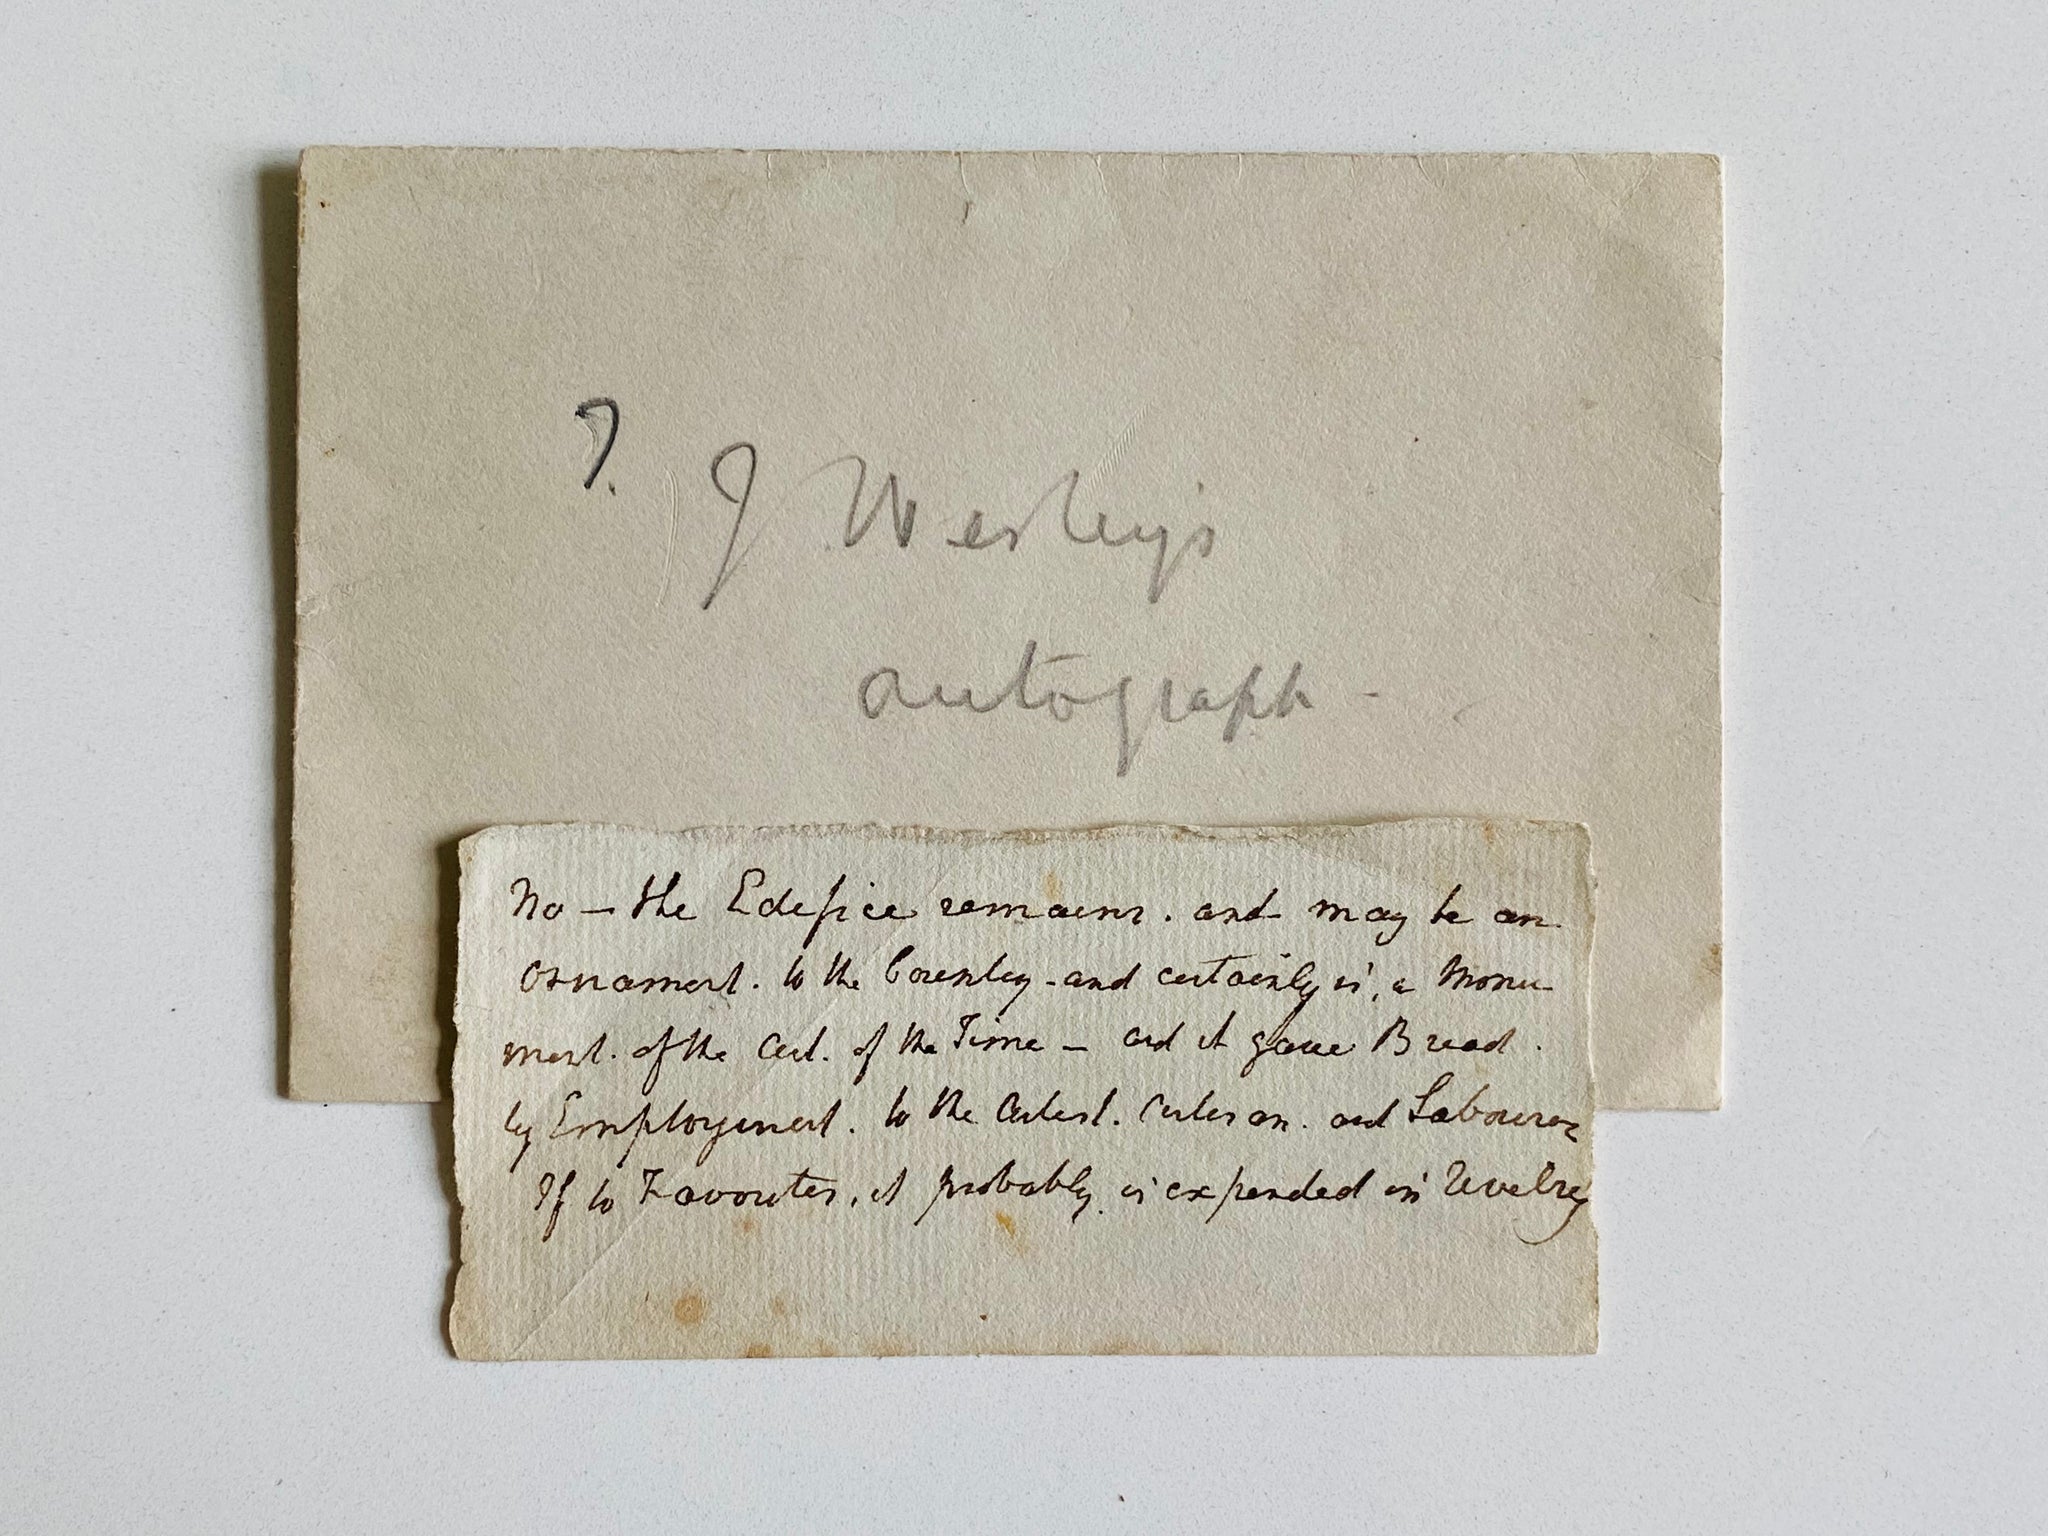 ?
J Wesley's
autograph -
No - the Edefice remains. and may be an
Ornament. to the Country - and certainly is, a Monu-
ment. of the Art. of the Time - and it gave Bread.
by Employment. to the Artist. Artisan. and Labourer
If to Favorites, it probably is expended in Revelry